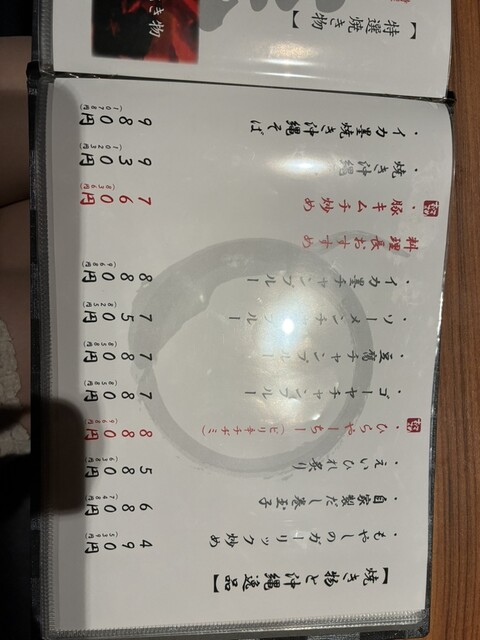 【焼き物と沖縄逸品】
・もやしのガーリック炒め 490円 (539)
・自家製だし巻玉子 680円 (748)
・えいひれ炙り 580円 (638)
・ひらやーちー(ピリ辛チヂミ) 880円 (968)
・ゴーヤチャンプルー 780円 (858)
・豆腐チャンプルー 780円 (858)
・ソーメンチャンプルー 750円 (825)
・イカ墨チャンプルー 880円 (968)
料理長おすすめ
・豚キムチ炒め 760円 (836)
・焼き沖縄 930円 (1023)
・イカ墨焼き沖縄そば 980円 (1078)
【特選焼き物】
き物